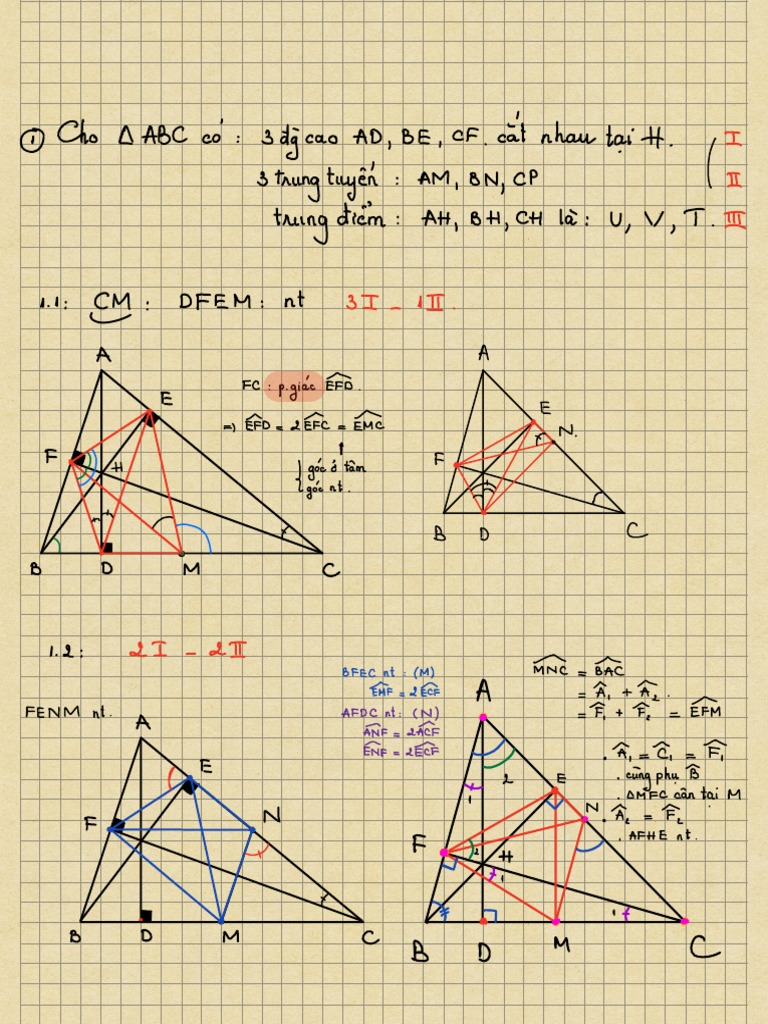 ① Cho △ ABC có : 3 đg cao AD, BE, CF. cắt nhau tại H. I
3 trung tuyến : AM, BN, CP II
trung điểm : AH, BH, CH là : U, V, T. III
1.1 : CM : DFEM : nt 3I - 1II.
A
E
F
H
B
D
M
C
FC : p.giác \widehat{EFD}.
=) \widehat{EFD} = 2\widehat{EFC} = \widehat{EMC}
góc ở tâm
góc nt.
A
E
N.
F
B
D
C
1.2 : 2I - 2II
FENM nt.
A
E
F
N
B
D
M
C
BFEC nt : (M)
\widehat{EMF} = 2\widehat{ECF}
AFDC nt : (N)
\widehat{ANF} = 2\widehat{ACF}
\widehat{ENF} = 2\widehat{ECF}
A
1
2
E
N
F
2
1
H
1
B
D
M
C
\widehat{MNC} = \widehat{BAC}
= \widehat{A}₁ + \widehat{A}₂.
= \widehat{F}₁ + \widehat{F}₂ = \widehat{EFM}
. \widehat{A}₁ = \widehat{C}₁ = \widehat{F}₁
. cùng phụ \widehat{B}
. △MFC cân tại M
. \widehat{A}₂ = \widehat{F}₂
. AFHE nt.